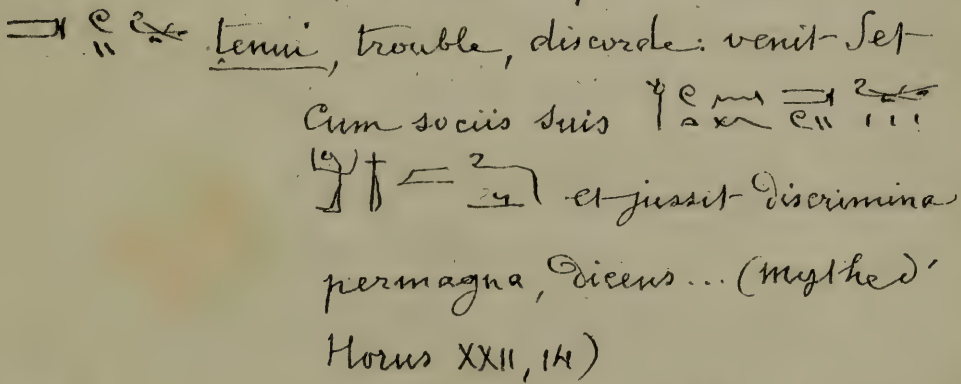 tenui, trouble, discorde: venit Set
cum sociis suis
et jussit discrimina
permagna, dicens... (mythe d'
Horus XXII, 14)